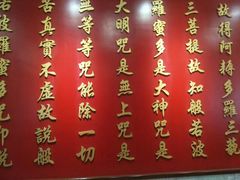 故得阿耨多羅三藐
三菩提故知般若波
羅蜜多是大神咒是
大明咒是無上咒是
無等等咒能除一切
苦真實不虛故說般
若波羅蜜多咒即說